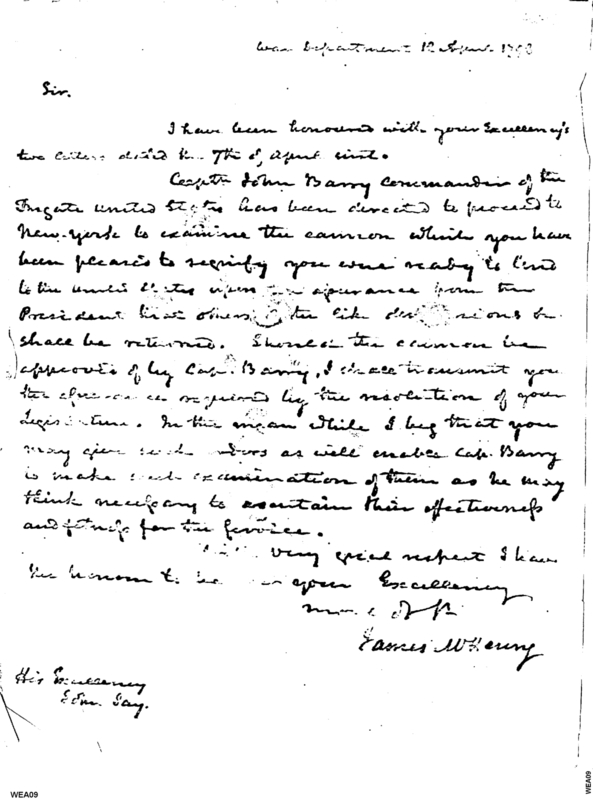 War Department 12 April 1798
Sir.
I have been honoured with your Excellency's
two letters dated the 7th of April inst.
Capt. John Barry commander of the
Frigate united States has been directed to proceed to
New-York to examine the cannon which you have
been pleased to signify you were ready to lend
to the united States upon an assurance from the
President that others of the like dimensions
shall be returned. Should the cannon be
approved of by Cap. Barry, I shall transmit you
the assurances required by the resolution of your
Legislature. In the mean while I beg that you
may give such orders as will enable Cap. Barry
to make such examination of them as he may
think necessary to ascertain their effectiveness
and fitness for the service.
With very great respect I have
the honour to be your Excellency
James McHenry
His Excellency
Jay.
WEA09
WEA09